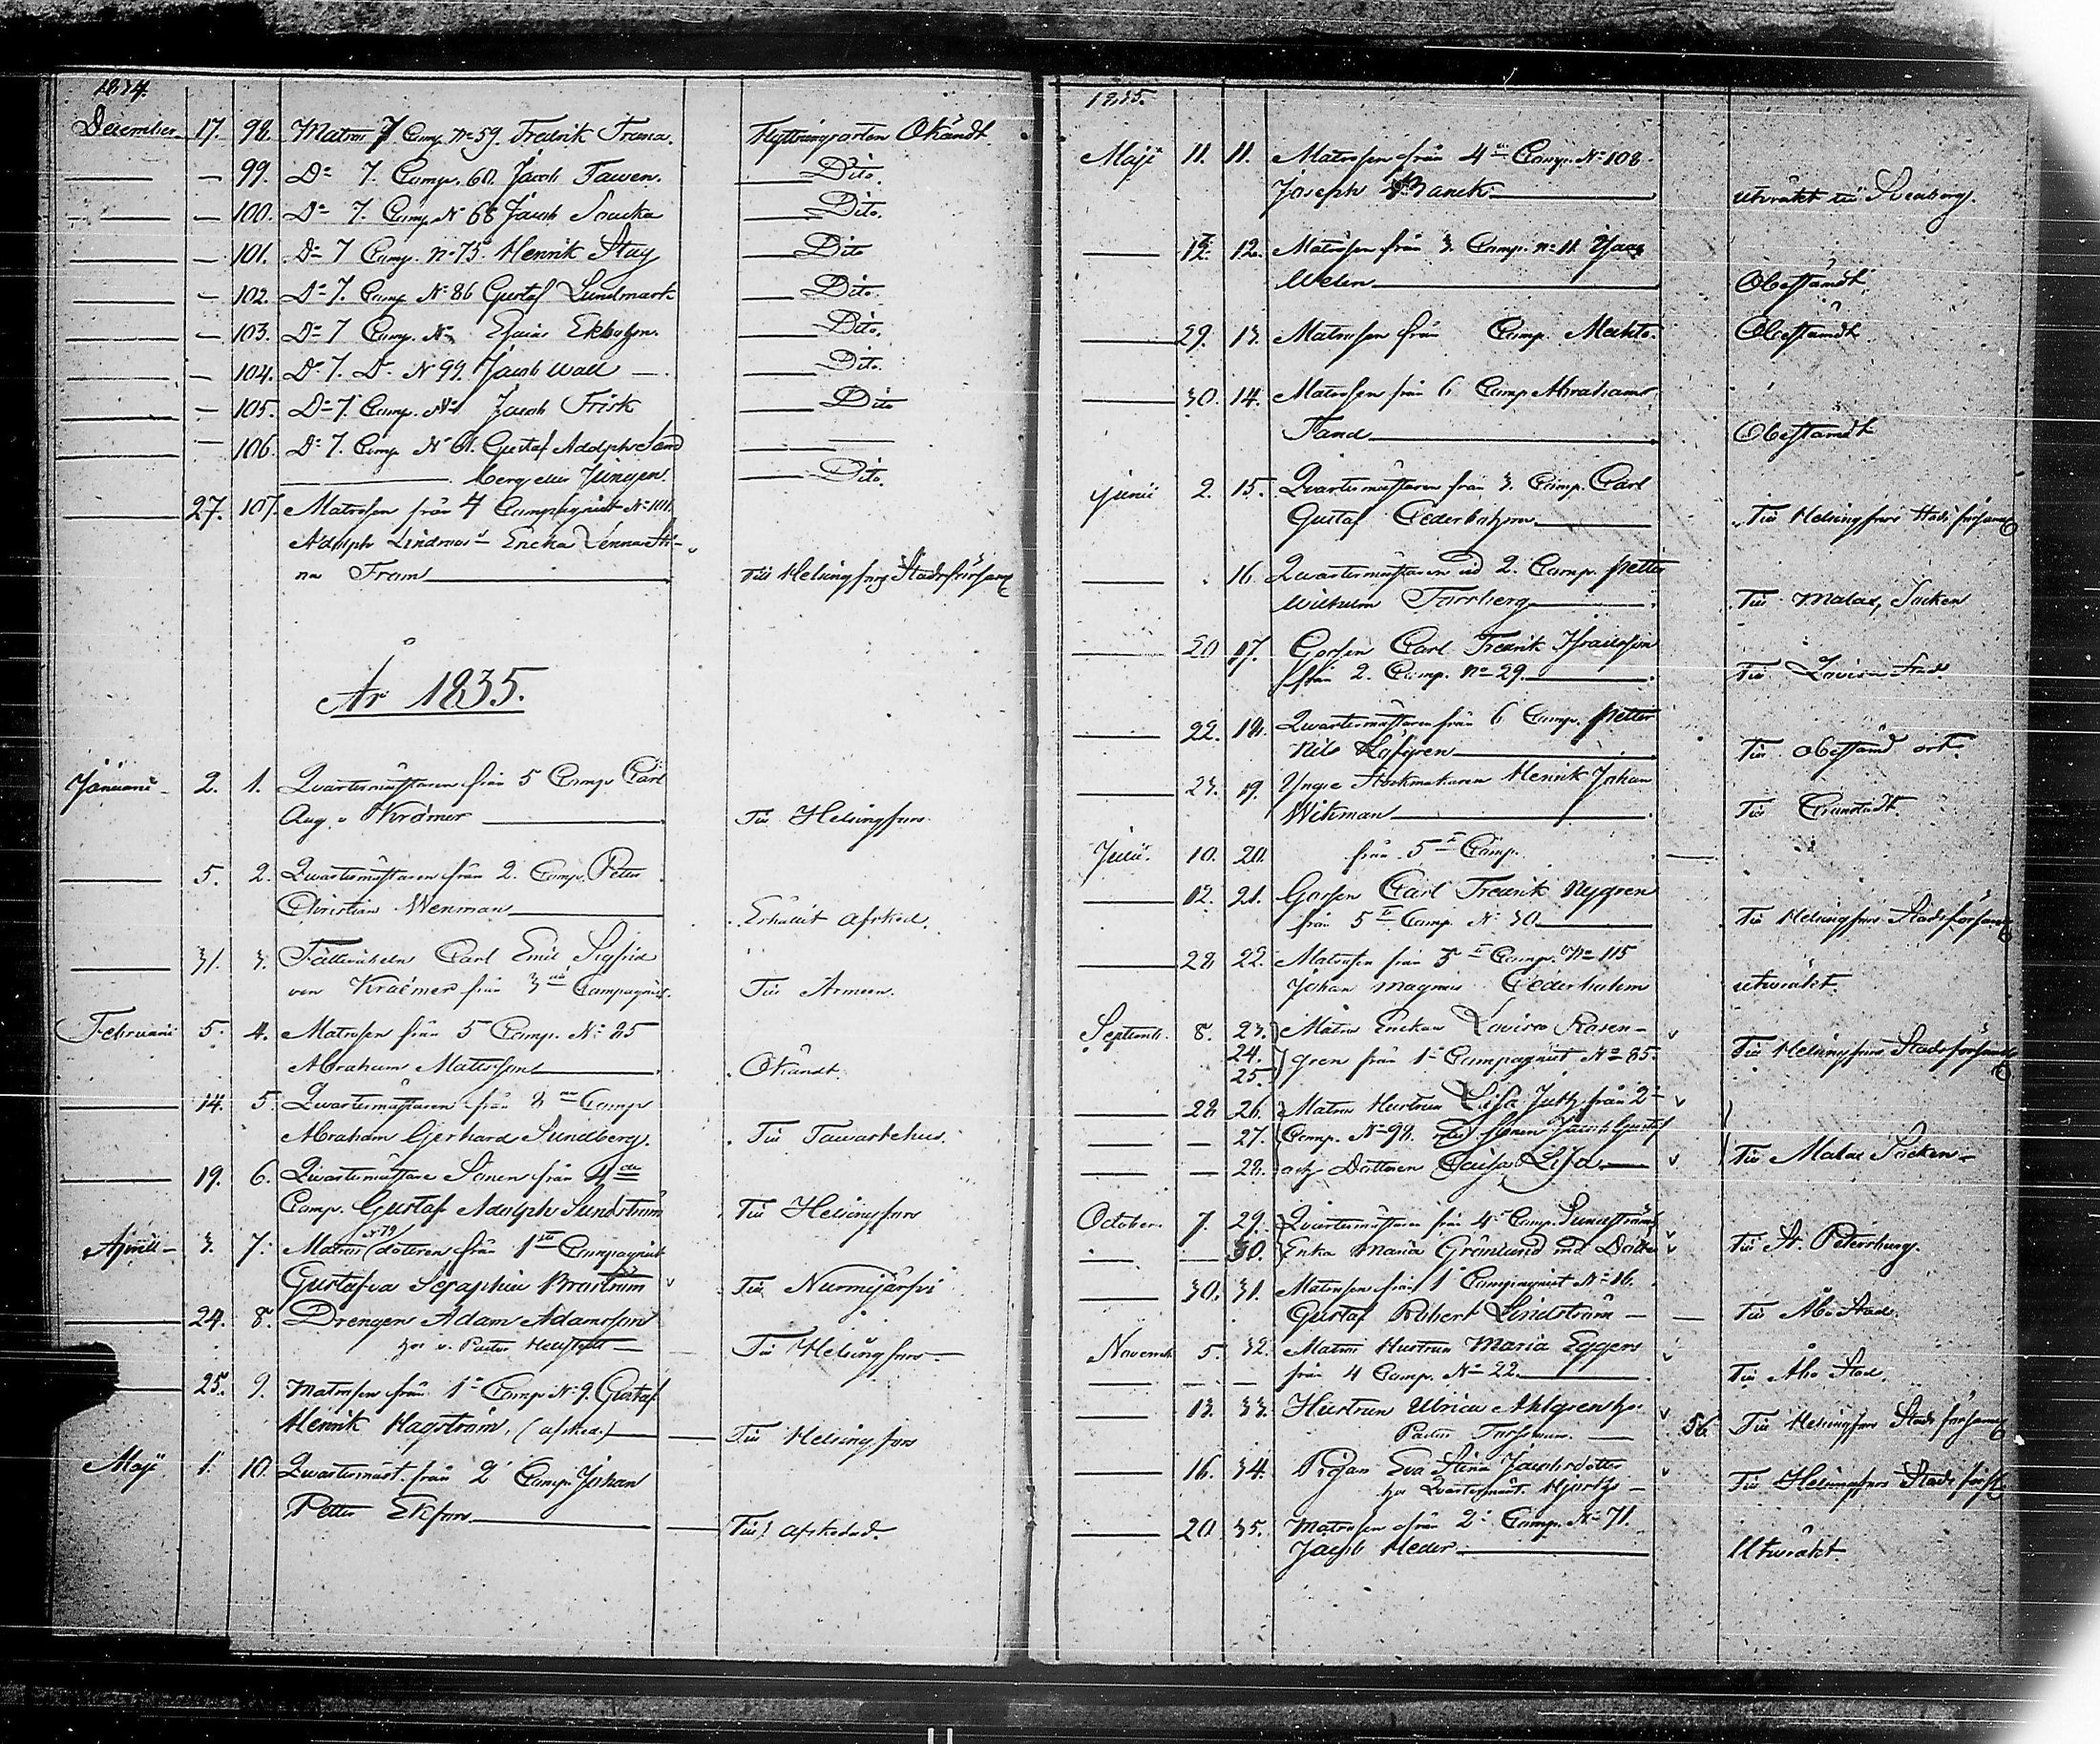 1834.
December 17. 98. Matros 7 Comp. No 59. Fredrik Flyttningsorten Okändt.
— 99. Do 7. Comp. 60. Jacob Dito.
— 100. Do 7. Comp. No 68 Jacob Dito.
— 101. Do 7 Comp. No 73. Henrik Stag Dito
— 102. Do 7. Comp No 86 Gustaf Lundmark Dito.
— 103. Do 7 Comp. No Esaias Ekholm. Dito.
— 104. Do 7. Do No 99. Jacob Wall — Dito.
— 105. Do 7. Comp. No Jacob Frisk Dito
— 106. Do 7. Comp No 61. Gustaf Adolph Sand
berg eller Jungen. Dito.
27. 107. Matrosen från 4 Compagniet No 101.
Adolph Lindroos Encka Lenna Sti-
na Fram Till Helsingfors Stadsförsaml
År 1835.
Januarii 2. 1. Quartermästaren från 5 Comp Carl
Aug. v Kræmer Till Helsingfors
5. 2. Quartermästaren från 2. Comp. Petter
Christian Wenman Erhållit afsked.
31. 3. Carl Emil Sigfrid
von Kræmer från 3 Compagniet. Till Armeen.
Februarii 5. 4. Matrosen från 5 Comp. No 25
Abraham Mattsson Okändt.
14. 5. Quartermästaren från 8 Comp
Abraham Gerhard Sundberg. Till Tawastehus.
19. 6. Quartermästare Sonen från 4
Comp. Gustaf Adolph Sundström Till Helsingfors
No 79
April 3. 7. Matros dotteren från 1 Compagniet
Gustafva Seraphia Till Nurmijärfvi
24. 8. Drengen Adam Adamsson
hos v. Pastor Till Helsingfors
25. 9. Matrosen från 1 Comp No 9. Gustaf
Henrik Hagström, (afsked) Till Helsingfors
Maji 1. 10. Quartermäst. från 2 Comp Johan
Petter Ekfors Till afskedad.
1835.
Maji 11. 11. Matrosen från 4 Comp. No 108
Joseph utvräkt till Sveaborg.
12. 12. Matrosen från 3 Comp. No 11
Welen Obestämdt
29. 13. Matrosen från Comp Obestämdt
30. 14. Matrosen från 6 Comp Abraham
Obestämdt
Junii 2. 15. Quartermästaren från 3. Comp. Carl
Gustaf Cederholm Till Helsingfors Stads församl
16. Quartermästaren vid 2. Comp. Petter
Wilhelm Till Malax Socken
20 17. Gossen Carl Fredrik Israelsson
från 2. Comp. No 29. Till Lovisa Stad
22. 18. Quartermästaren från 6 Comp. Petter
Nils Löfgren Till obestämd ort.
23. 19. Yngre Stockmakaren Henrik Johan
Wikman Till Cronstadt.
Julii. 10. 20. från 5 Comp.
12. 21. Gossen Carl Fredrik Nygren
från 5 Comp. No 30 Till Helsingfors Stadsförsaml
28 22. Matrosen från 5 Comp. No 115
Johan Magnus Cederholm utvräkt.
Septemb. 8. 23. Matros Enckan Lovisa Rosen-
24. gren från 1 Compagniet No 85. Till Helsingfors Stadsförsaml
25.
28 26. Matros Hustrun Lisa från 2
— 27. Comp. No 98. med Sonen Jacob Gustaf
— 28. och Dottren Caisa Lisa Till Malax Socken
October 7. 29. Quartermästaren från 4 Comp. Sundström
— 30. Enka Maria Grönlund med Dotter Till St. Petersburg.
30. 31. Matrosen från 1 Compagniet No 16.
Gustaf Robert Lindström Till Åbo Stad.
Novemb 5. 32. Matros Hustrun Maria Eggers
— — från 4 Comp. No 22. Till Åbo Stad.
13. 33. Hustrun Ulrica Ahlgren hos
Pastor 56. Till Helsingfors Stads församl
16. 34. Pigan Eva Stina Jacobsdotter
hos Quartermäst. Till Helsingfors Stads försl
20. 35. Matrosen från 2 Comp. No 71.
Jacob Heder Utvräkt.